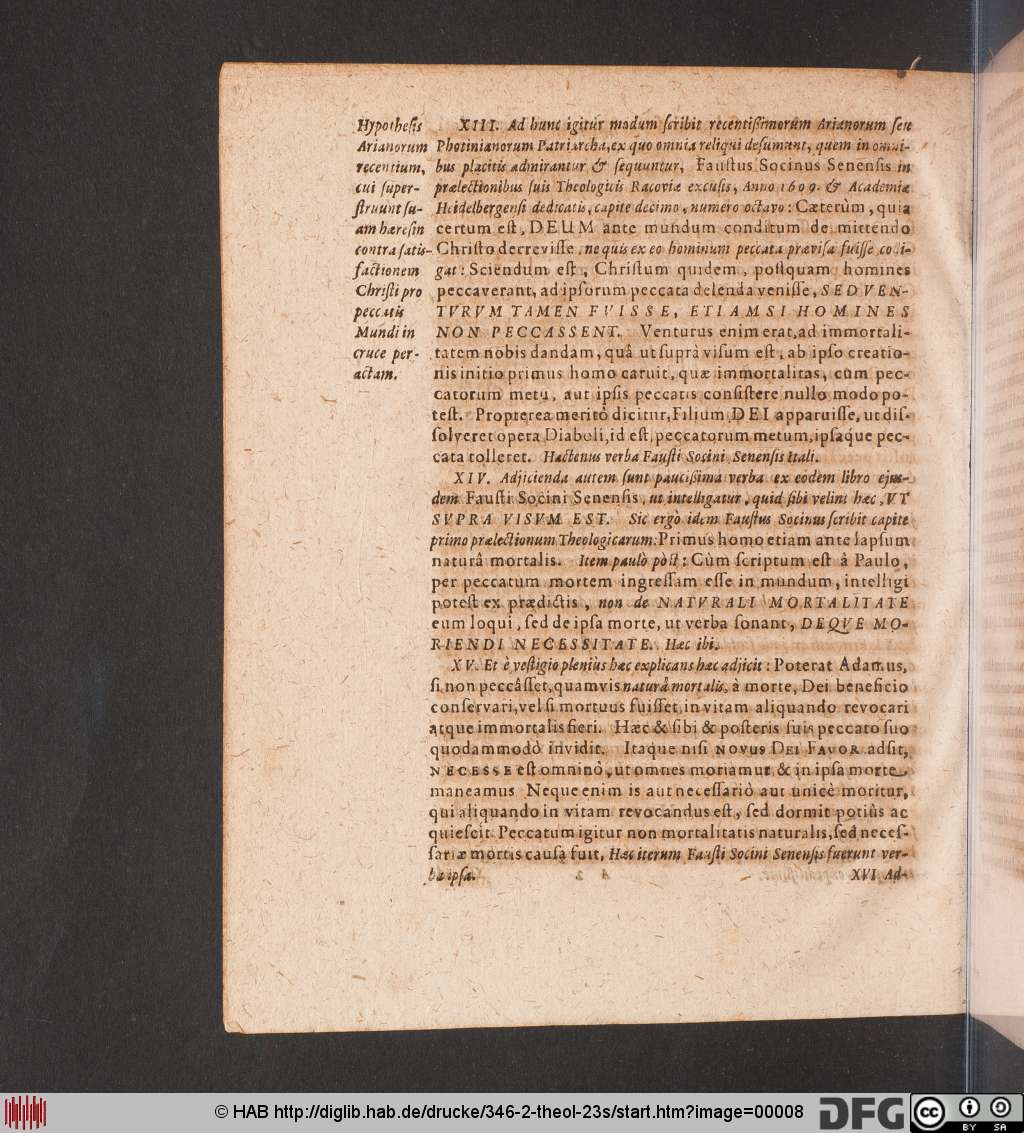 Hypothesis
Arianorum
recentium,
cui super-
struunt su-
am hæresin
contra satis-
factionem
Christi pro
peccatis
Mundi in
cruce per-
actam.
XIII. Ad hunc igitur modum scribit recentissimorum Arianorum seu
Photinianorum Patriarcha, ex quo omnia reliqui desumunt, quem in omni-
bus placitis admirantur & sequuntur, Faustus Socinus Senensis in
prælectionibus suis Theologicis Racoviæ excusis, Anno 1609. & Academiæ
Heidelbergensi dedicatis, capite decimo, numero octavo: Cæterùm, quia
certum est, DEUM ante mundum conditum de mittendo
Christo decrevisse, ne quis ex eo hominum peccata prævisa fuisse colli-
gat: Sciendum est, Christum quidem, postquam homines
peccaverant, ad ipsorum peccata delenda venisse, SED VEN-
TVRVM TAMEN FVISSE, ETIAMSI HOMINES
NON PECCASSENT. Venturus enim erat, ad immortali-
tatem nobis dandam, quâ ut suprà visum est, ab ipso creatio-
nis initio primus homo caruit, quæ immortalitas, cùm pec-
catorum metu, aut ipsis peccatis consistere nullo modo po-
test. Propterea meritò dicitur, Filium DEI apparuisse, ut dis-
solveret opera Diaboli, id est, peccatorum metum, ipsaque pec-
cata tolleret. Hactenus verba Fausti Socini, Senensis Itali.
XIV. Adjicienda autem sunt paucissima verba ex eodem libro ejus-
dem Fausti Socini Senensis, ut intelligatur, quid sibi velint hæc, VT
SVPRA VISVM EST. Sic ergò idem Faustus Socinus scribit capite
primo prælectionum Theologicarum: Primus homo etiam ante lapsum
naturâ mortalis. Item paulò pòst: Cùm scriptum est â Paulo,
per peccatum mortem ingressam esse in mundum, intelligi
potest ex prædictis, non de NATVRALI MORTALITATE
eum loqui, sed de ipsa morte, ut verba sonant, DEQVE MO-
RIENDI NECESSITATE. Hæc ibi.
XV. Et è vestigio pleniùs hæc explicans hæc adjicit: Poterat Adamus,
si non peccâsset, quamvis naturâ mortalis, à morte, Dei beneficio
conservari, vel si mortuus fuisset, in vitam aliquando revocari
atque immortalis fieri. Hæc & sibi & posteris suis peccato suo
quodammodò invidit. Itaque nisi NOVUS DEI FAVOR adsit,
NECESSE est omninò, ut omnes moriamur & in ipsa morte
maneamus Neque enim is aut necessariò aut unicè moritur,
qui aliquando in vitam revocandus est, sed dormit potiùs ac
quiescit. Peccatum igitur non mortalitatis naturalis, sed neces-
sariæ mortis causa fuit, Hæc iterum Fausti Socini Senensis fuerunt ver-
ba ipsa.
XVI Ad-
© HAB http://diglib.hab.de/drucke/346-2-theol-23s/start.htm?image=00008
DFG
cc
BY SA